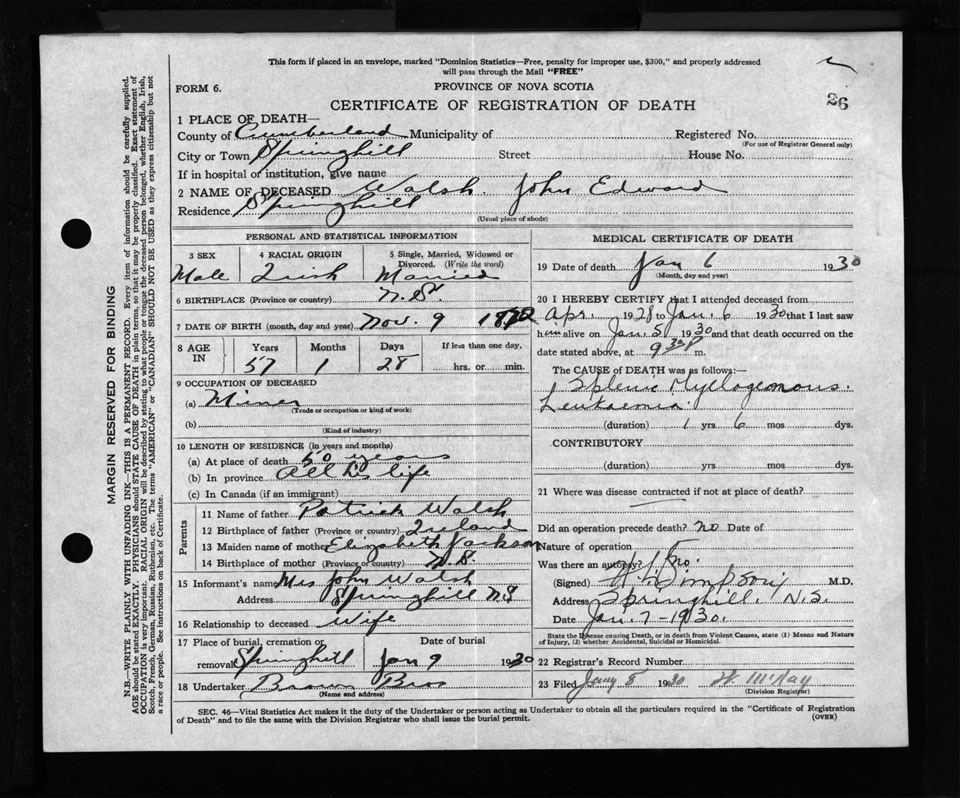 This form if placed in an envelope, marked "Dominion Statistics—Free, penalty for improper use, $300," and properly addressed
will pass through the Mail "FREE"
FORM 6.
PROVINCE OF NOVA SCOTIA
26
CERTIFICATE OF REGISTRATION OF DEATH
1 PLACE OF DEATH—
County of Cumberland Municipality of Registered No.
(For use of Registrar General only)
City or Town Springhill Street House No.
If in hospital or institution, give name
2 NAME OF DECEASED Walsh, John Edward
Residence Springhill
(Usual place of abode)
PERSONAL AND STATISTICAL INFORMATION
3 SEX 4 RACIAL ORIGIN 5 Single, Married, Widowed or
Divorced. (Write the word)
Male Irish Married
6 BIRTHPLACE (Province or country) N.S.
7 DATE OF BIRTH (month, day and year) Nov. 9 1872
8 AGE IN Years Months Days If less than one day,
57 1 28 hrs. or min.
9 OCCUPATION OF DECEASED
(a) Miner
(Trade or occupation or kind of work)
(b)
(Kind of industry)
10 LENGTH OF RESIDENCE (in years and months)
(a) At place of death 50 years
(b) In province All his life
(c) In Canada (if an immigrant)
Parents
11 Name of father Patrick Walsh
12 Birthplace of father (Province or country) Ireland
13 Maiden name of mother Elizabeth Jackson
14 Birthplace of mother (Province or country) N.S.
15 Informant's name Mrs John Walsh
Address Springhill N.S
16 Relationship to deceased Wife
17 Place of burial, cremation or Date of burial
removal Springhill Jan 9 1930
18 Undertaker Brown Bros
(Name and address)
MEDICAL CERTIFICATE OF DEATH
19 Date of death Jan 6 1930
(Month, day and year)
20 I HEREBY CERTIFY that I attended deceased from
Apr. 1928 to Jan. 6 1930 that I last saw
h im alive on Jan. 5 1930 and that death occurred on
date stated above, at 9 30 P m.
The CAUSE OF DEATH was as follows:—
Splenic Myelogenous
Leukaemia
(duration) 1 yrs 6 mos dys.
CONTRIBUTORY
(duration) yrs mos dys.
21 Where was disease contracted if not at place of death?
Did an operation precede death? no Date of
Nature of operation
Was there an autopsy? no.
(Signed) Simpson M.D.
Address Springhill, N.S.
Date Jan. 7-1930.
State the Disease causing Death, or in death from Violent Causes, state (1) Means and Nature
of Injury, (2) whether Accidental, Suicidal or Homicidal.
22 Registrar's Record Number
23 Filed Jany 8 1930 McKay
(Division Registrar)
SEC. 46—Vital Statistics Act makes it the duty of the Undertaker or person acting as Undertaker to obtain all the particulars required in the "Certificate of Registration
of Death" and to file the same with the Division Registrar who shall issue the burial permit.
(OVER)
MARGIN RESERVED FOR BINDING
N.B.—WRITE PLAINLY WITH UNFADING INK—THIS IS A PERMANENT RECORD. Every item of information should be carefully supplied.
AGE should be stated EXACTLY. PHYSICIANS should STATE CAUSE OF DEATH in plain terms, so that it may be properly classified. Exact statement of
OCCUPATION is very important. RACIAL ORIGIN will be described by stating to what people or tongue the deceased person belonged, whether English, Irish,
Scotch, French, German, Russian, Ruthenian, etc. The terms "AMERICAN" or "CANADIAN" SHOULD NOT BE USED as they express citizenship but not
a race or people. See instructions on back of Certificate.